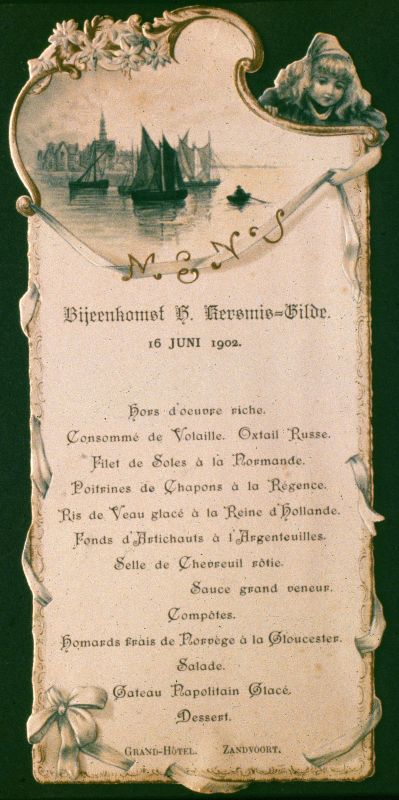 MENU
Bijeenkomst H. Kersmis=Gilde.
16 JUNI 1902.
Hors d'oeuvre riche.
Consommé de Volaille. Oxtail Russe.
Filet de Soles à la Normande.
Poitrines de Chapons à la Régence.
Ris de Veau glacé à la Reine d'Hollande.
Fonds d'Artichauts à l'Argenteuilles.
Selle de Chevreuil rôtie.
Sauce grand veneur.
Compôtes.
Homards frais de Norvège à la Gloucester.
Salade.
Gateau Napolitain Glacé.
Dessert.
GRAND-HÔTEL. ZANDVOORT.